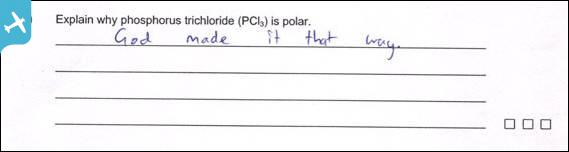 Explain why phosphorus trichloride (PCl₃) is polar.
God made it that way.